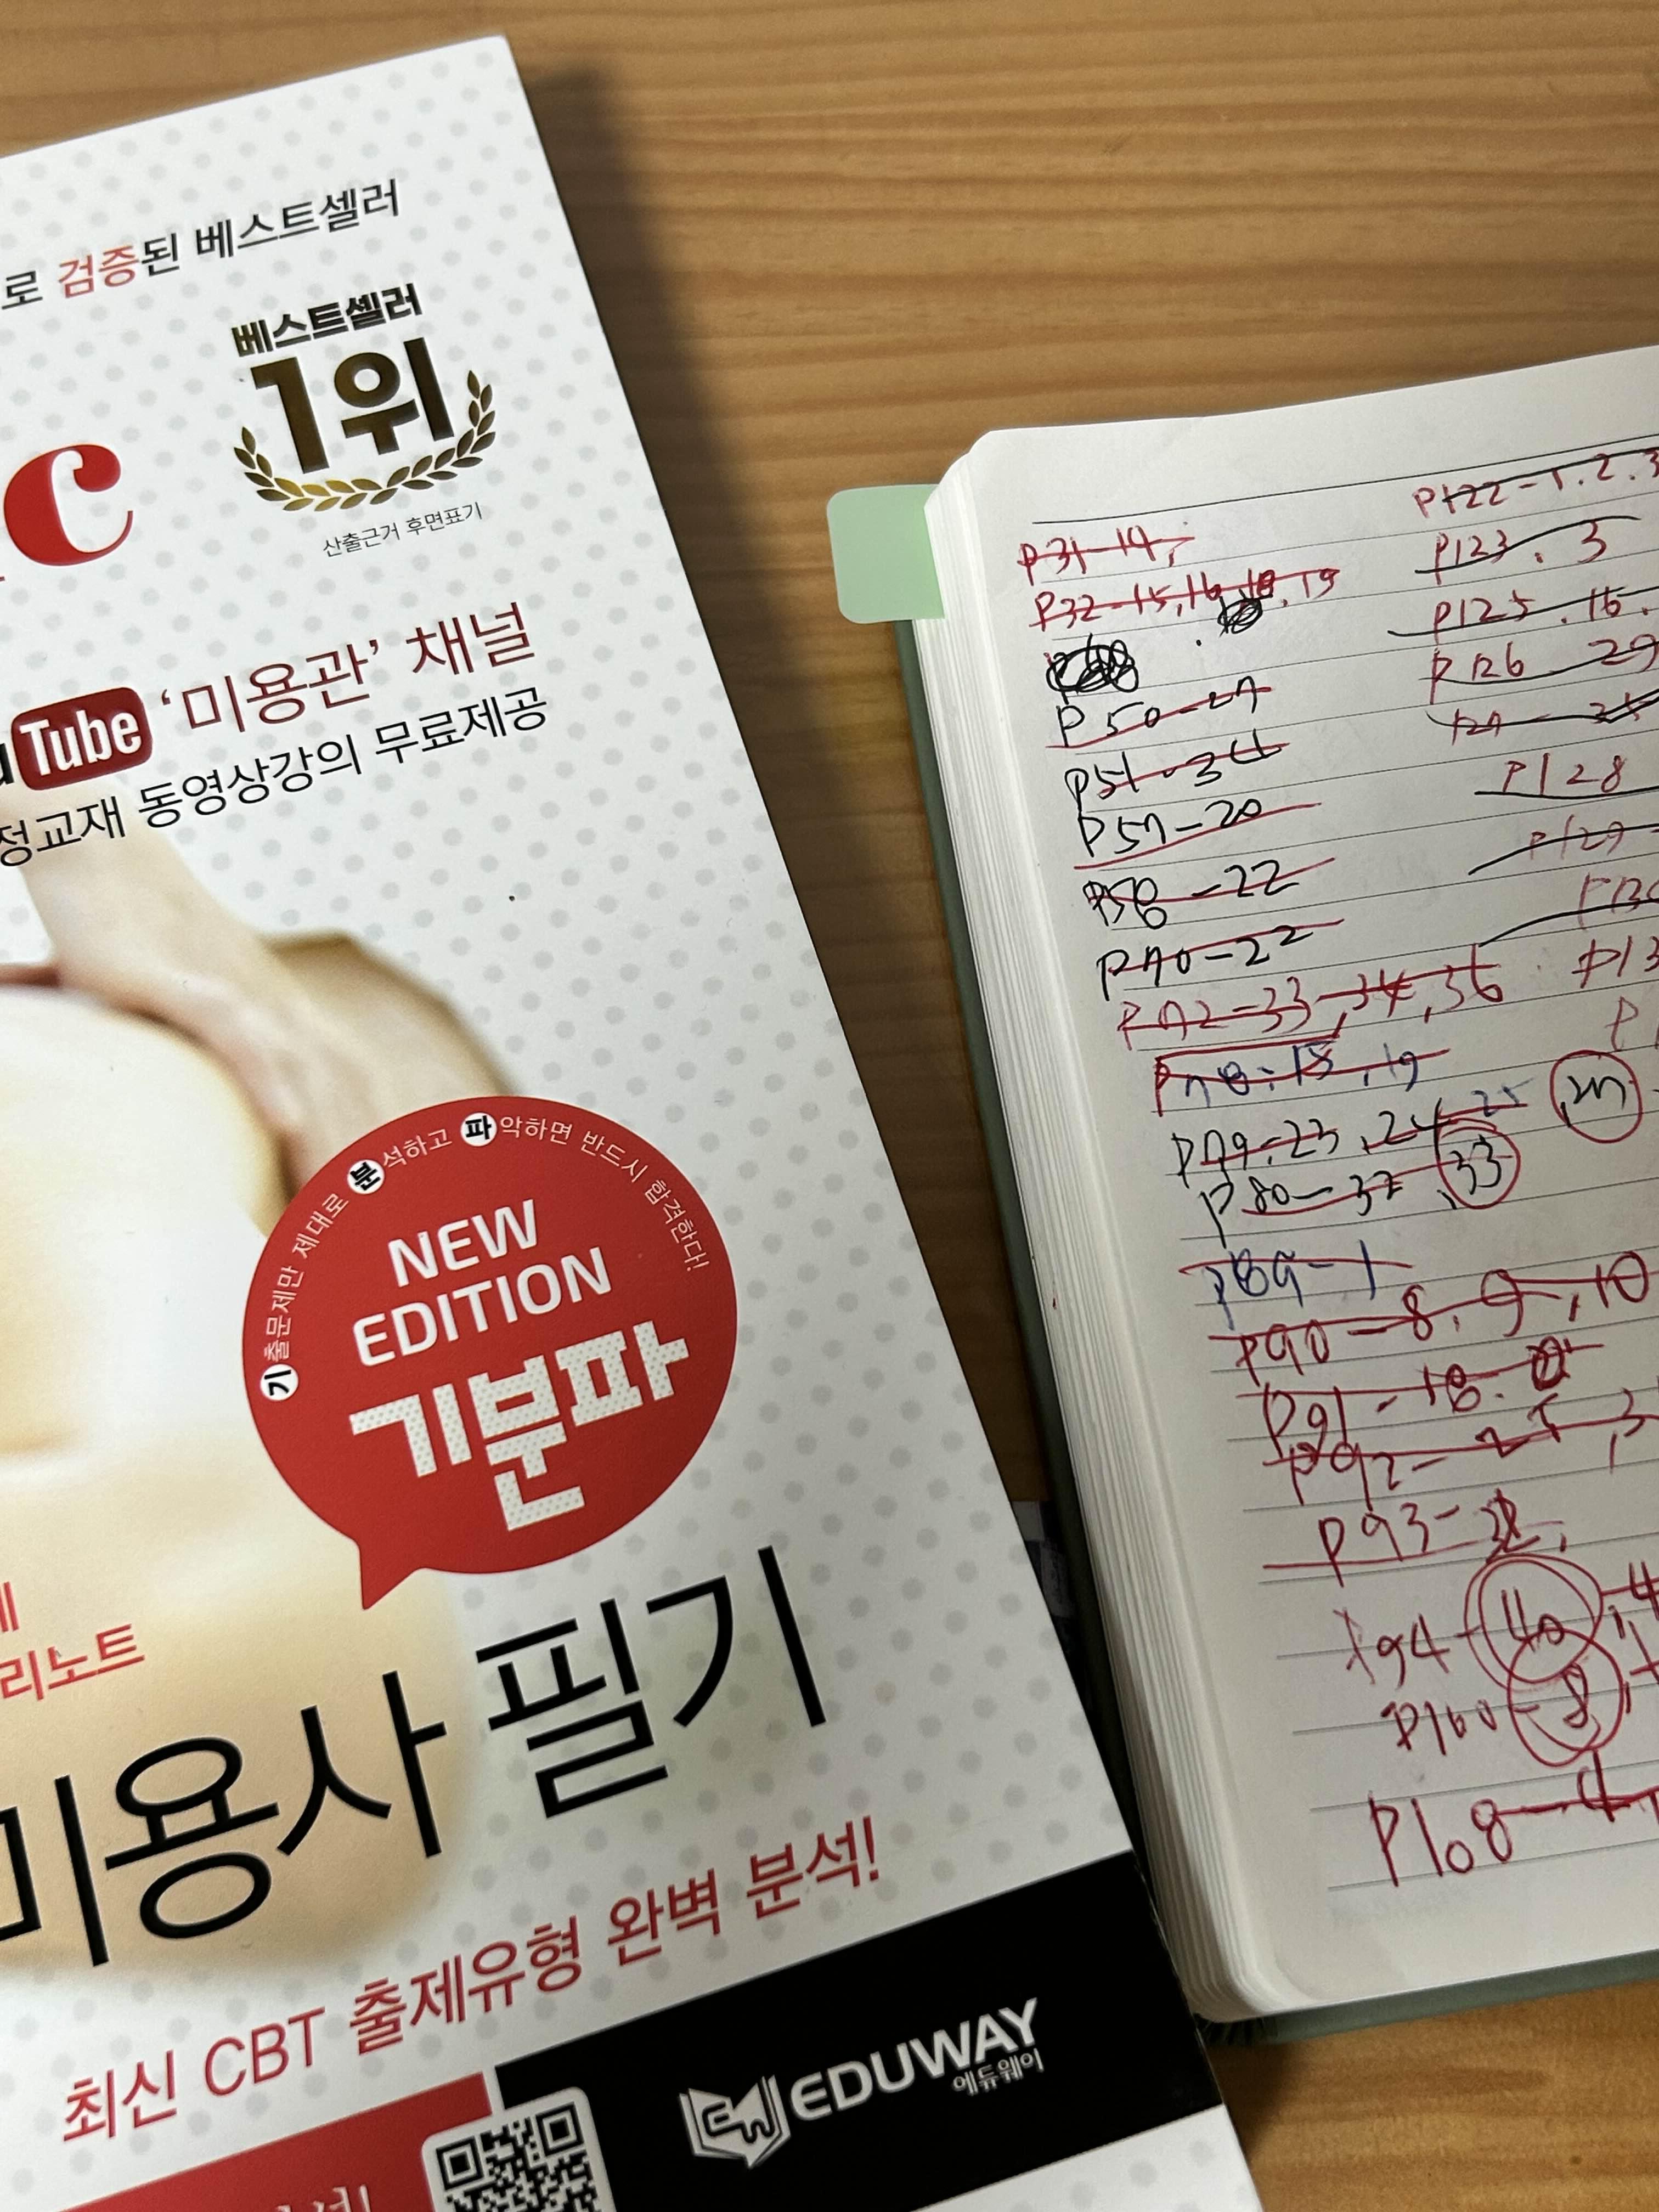 로 검증된 베스트셀러
베스트셀러
1위
산출근거 후면표기
c
Tube '미용관' 채널
정교재 동영상강의 무료제공
기출문제만 제대로 분석하고 파악하면 반드시 합격한다!
NEW
EDITION
기분파
리노트
미용사 필기
최신 CBT 출제유형 완벽 분석!
EDUWAY
에듀웨이
P31-14,
P32-15,16,18,19
P50-27
P51-34
P57-20
P58-22
P70-22
P72-33,34,36
P78-18,19
P79-23,24,25
P80-32,33
P89-1
P90-8,9,10
P91-18.
P92-25,3
P93-38,
P94-40,4
P100-8,
P108-4
P122-1.2.3
P123.3
P125.16.
P126 29
P128
P129-
P13
27